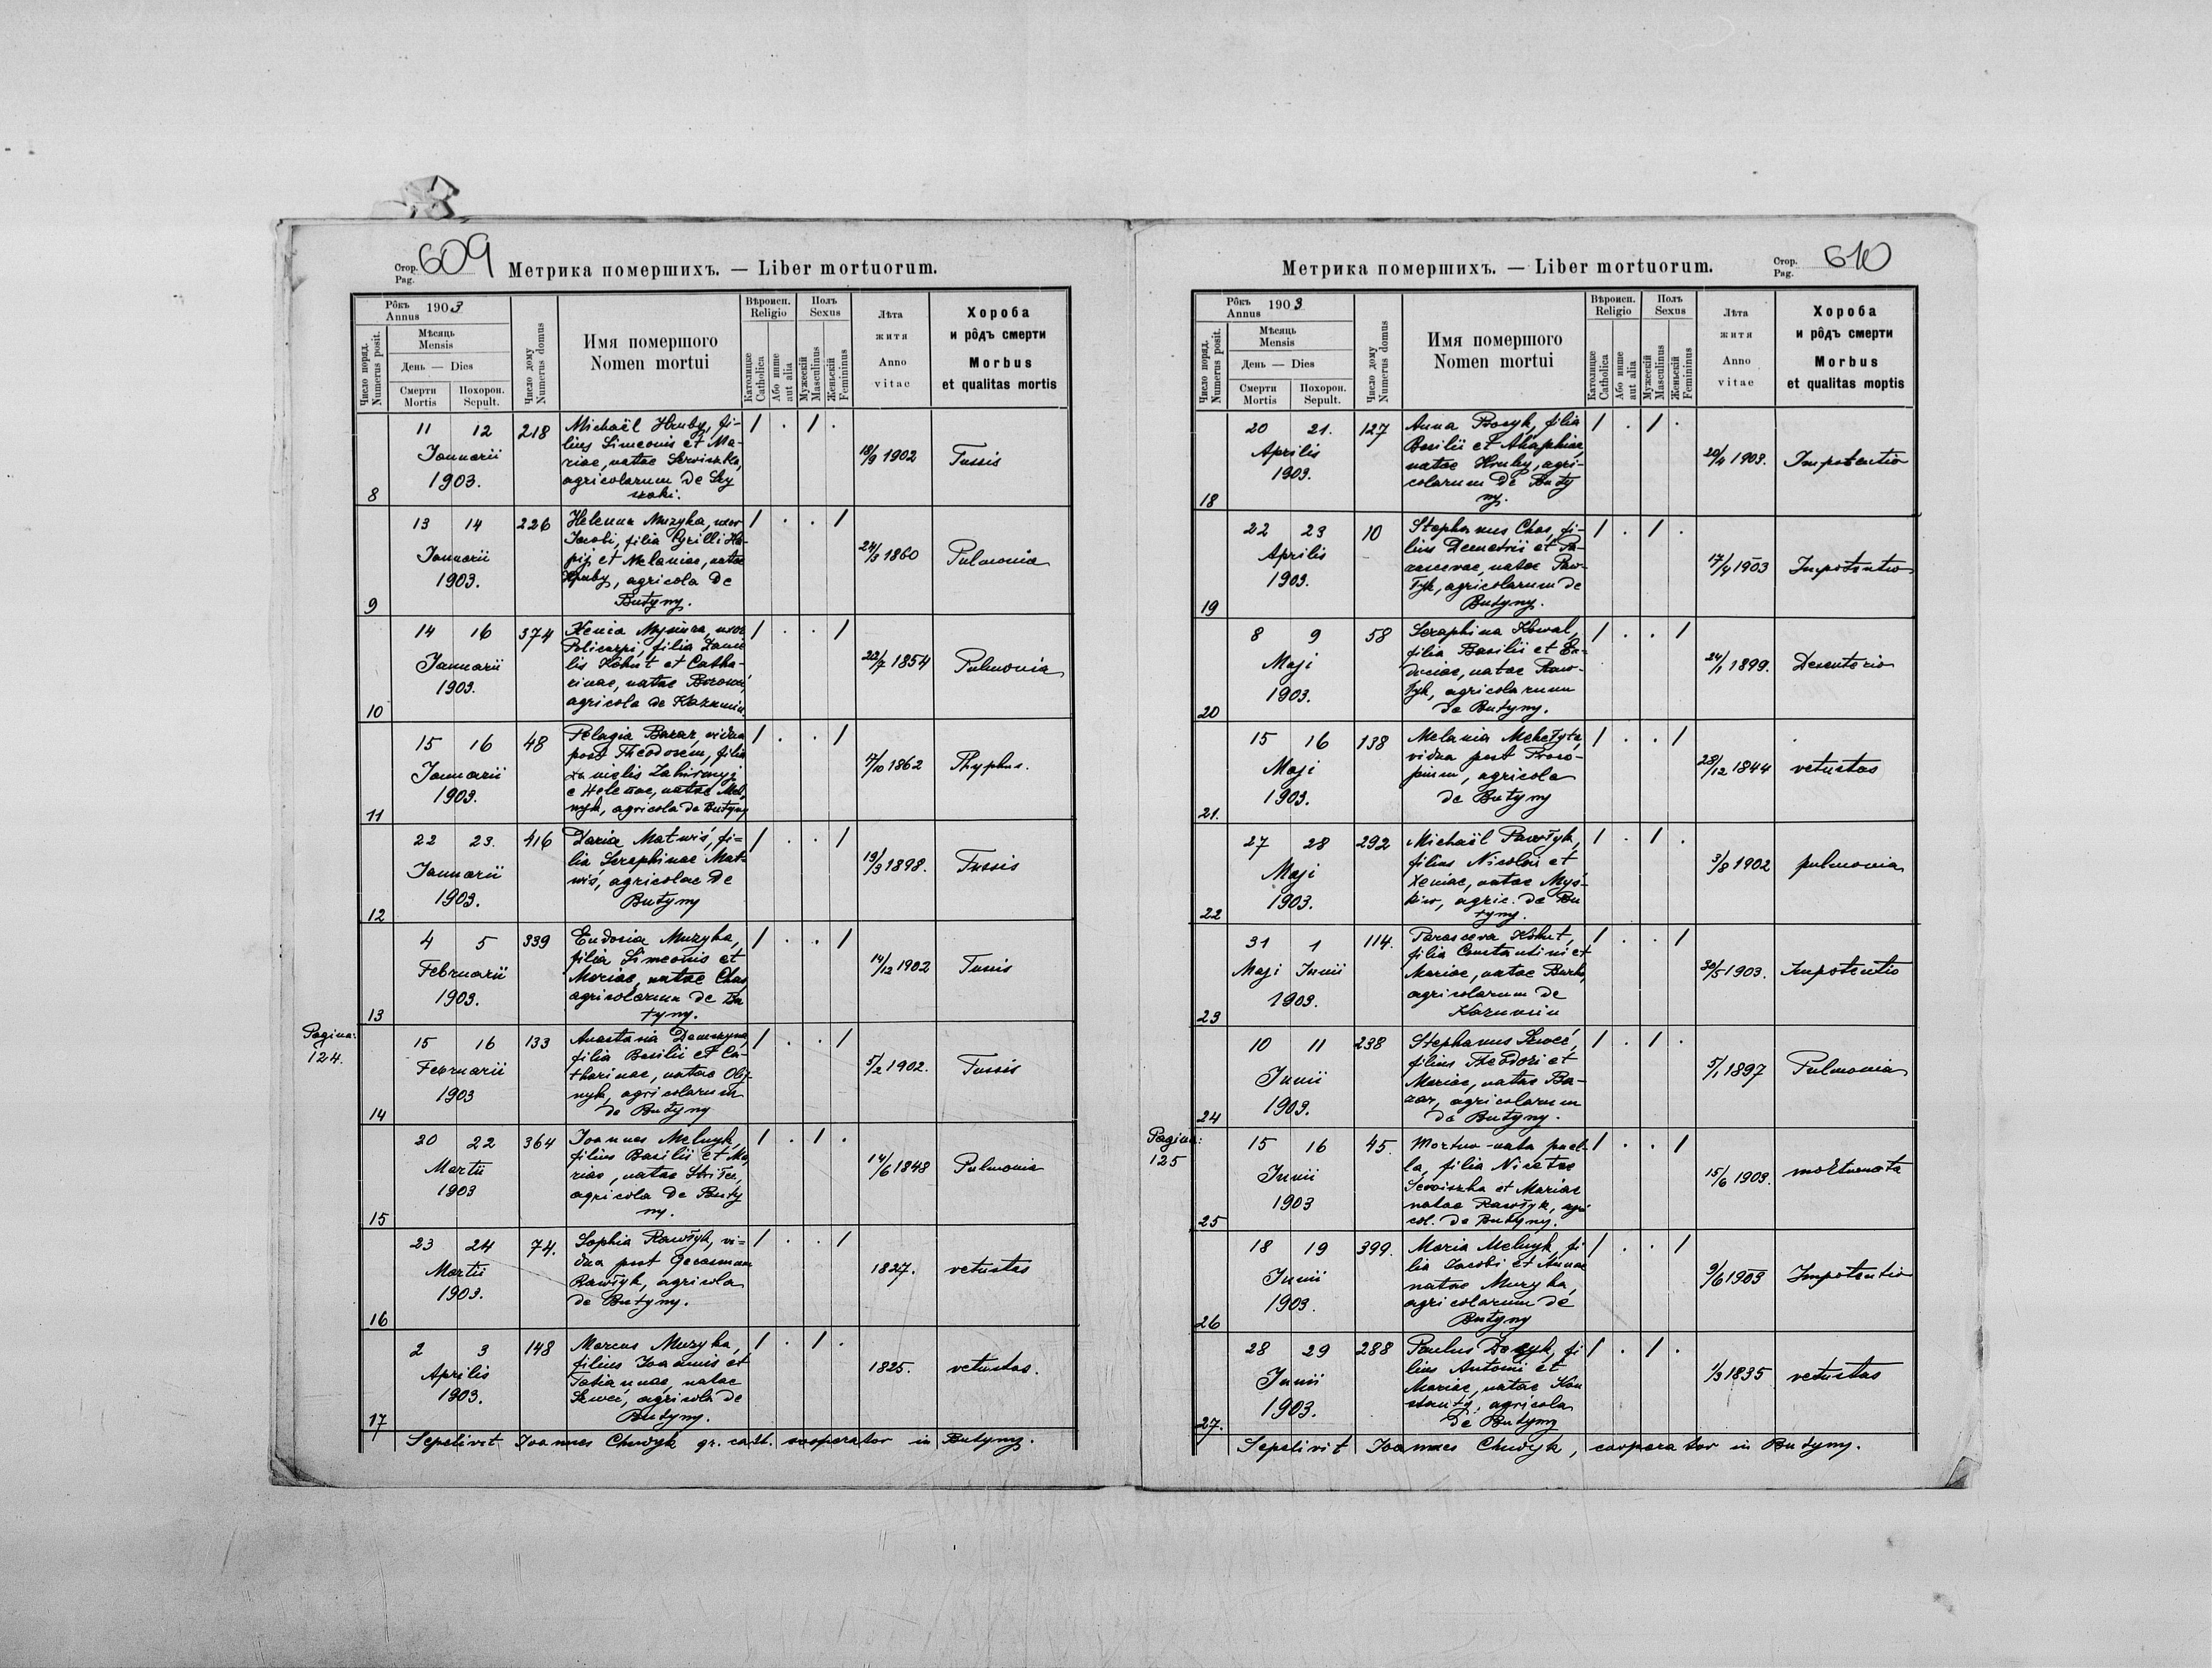 Стор.
Pag.
609
Метрика помершихъ. — Liber mortuorum.
Рôкъ
Annus
1903
Мѣсяць
Mensis
День — Dies
Смерти
Mortis
Похорон.
Sepult.
Число поряд.
Numerus posit.
Число дому
Numerus domus
Имя помершого
Nomen mortui
Вѣроисп.
Religio
Католицке
Catholica
Або инше
aut alia
Полъ
Sexus
Мужескій
Masculinus
Женьскій
Femininus
Лѣта
житя
Anno
vitae
Хороба
и рôдъ смерти
Morbus
et qualitas mortis
8
11 12
Januarii
1903.
218
Michaël Hruby, fi-
lius Simeonis et Ma-
riae, natae
agricolarum de
18/9 1902
Tussis
9
13 14
Januarii
1903.
226
Helenna Muzyka, uxor
Jacobi, filia Cyrilli
et Melaniae, natae
Hruby, agricola de
Butyny.
24/3 1860
Pulmonia
10
14 16
Januarii
1903.
374
Xenia uxor
Policarpi, filia Danie
lis Kohut et Catha-
rinae, natae
agricola de
1854
Pulmonia
11
15 16
Januarii
1903.
48
Pelagia Bazar, vidua
post Theodorum, filia
agricola de Butyny
1862
Thyphus.
12
22 23.
Januarii
1903.
416
Daria Matwiś, fi=
lia Seraphinae Mat-
wiś, agricolae de
Butyny
19/3 1898.
Tussis
13
4 5
Februarii
1903.
339
Eudosia Muzyka,
filia Simeonis et
Mariae, natae Chas,
agricolarum de Bu
tyny.
14/12 1902
Tussis
Pagina:
124.
14
15 16
Februarii
1903
133
Anastasia
filia Basilii et Ca-
tharinae, natae Olij-
nyk, agricolarum
de Butyny
5/2 1902.
Tussis
15
20 22
Martii
1903
364
Joannes Melnyk,
filius Basilii et Ma
riae, natae
agricola de Buty
ny.
14/6 1848
Pulmonia
16
23 24
Martii
1903.
74.
Sophia Rawłyk, vi=
dua post Gerasmum
Rawłyk, agricola
de Butyny.
1827.
vetustas
17
2 3
Aprilis
1903.
148
Marcus Muzyka,
filius Joannis et
Tatiannae, natae
Szweć, agricola de
Butyny.
1825.
vetustas.
Sepelivit Joannes Chudyk gr. cath. cooperator in Butyny.
Метрика помершихъ. — Liber mortuorum.
Стор.
Pag.
610
Рôкъ
Annus
1903
Мѣсяць
Mensis
День — Dies
Смерти
Mortis
Похорон.
Sepult.
Число поряд.
Numerus posit.
Число дому
Numerus domus
Имя помершого
Nomen mortui
Вѣроисп.
Religio
Католицке
Catholica
Або инше
aut alia
Полъ
Sexus
Мужескій
Masculinus
Женьскій
Femininus
Лѣта
житя
Anno
vitae
Хороба
и рôдъ смерти
Morbus
et qualitas moptis
18
20 21.
Aprilis
1903.
127
Anna filia
Basilii et Ahaphiae,
natae Hruby, agri-
colarum de Buty
ny.
20/4 1903.
Impotentio
19
22 23
Aprilis
1903.
10
Stephanus Chas, fi-
lius Demetrii et Pa-
rascevae, natae Paw-
łyk, agricolarum de
Butyny.
17/4 1903
Impotentio
20
8 9
Maji
1903.
58
Seraphina Kowal,
filia Basilii et Eu-
dociae, natae Raw-
łyk, agricolarum
de Butyny.
24/1 1899.
Desenterio
21.
15 16
Maji
1903.
138
Melania Mekełyta,
vidua post Proco-
pium, agricola
de Butyny
28/12 1844
vetustas
22
27 28
Maji
1903.
292
Michaël Pawłyk,
filius Nicolai et
Xeniae, natae Myś-
kiw, agric. de Bu
tyny.
3/8 1902
pulmonia
23
31 1
Maji Junii
1903.
114.
Parasceva Kohut,
filia Constantini et
Mariae, natae
agricolarum de
30/5 1903.
Impotentio
24
10 11
Junii
1903.
238
Stephanus Szweć,
filius Theodori et
Mariae, natae Ba-
zar, agricolarum
de Butyny.
5/1 1897
Pulmonia
Pagina:
125
25
15 16
Junii
1903
45.
Mortuo-nata puel-
la, filia Nicetae
et Mariae
natae Rawłyk, agri
col. de Butyny.
15/6 1903.
mortuonata
26
18 19
Junii
1903.
399.
Maria Melnyk, fi
lia Jacobi et Annae
natae Muzyka,
agricolarum de
Butyny
9/6 1903
Impotentio
27.
28 29
Junii
1903.
288
Paulus fi
lius Antonii et
Mariae, natae Kon
stanty, agricola
de Butyny
1/3 1835
vetustas
Sepelivit Joannes Chudyk, cooperator in Butyny.